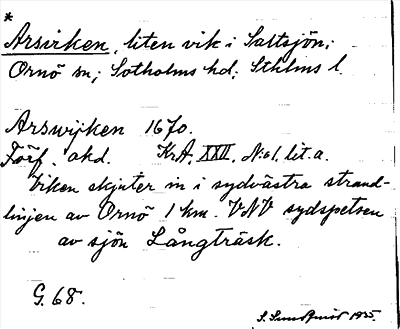 *
Arsviken, liten vik i Saltsjön;
Ornö sn; Sotholms hd; Sthlms l.
Arswijken 1670.
Förf. akd. KrA, XXII, N:o 1, lit. a.
Viken skjuter in i sydvästra strand-
linjen av Ornö 1 km. VNV sydspetsen
av sjön Långträsk.
G. 68.
S. 1935.